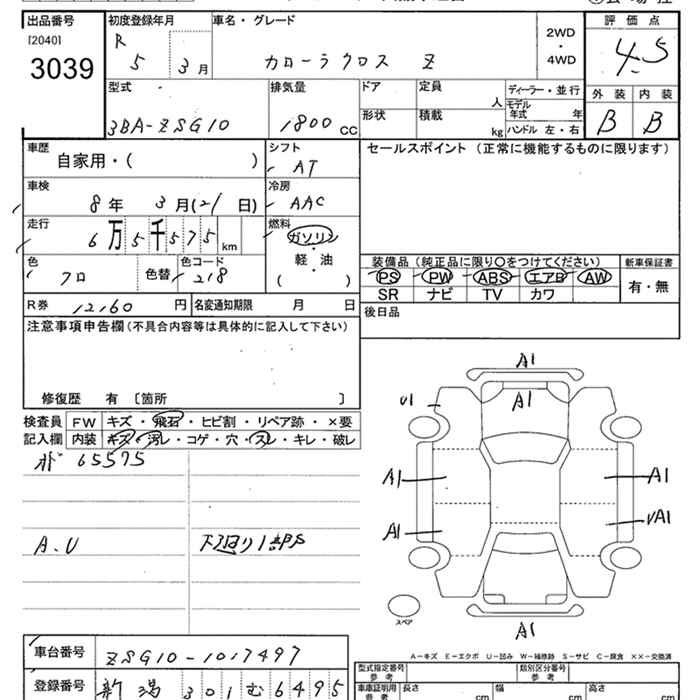 出品番号
[2040]
3039
初度登録年月
R 5 3月
車名・グレード
カローラクロス Z
2WD・4WD
評価点
4.5
外装 内装
B B
型式
3BA-ZSG10
排気量
1800 CC
ドア
形状
定員
人
積載
kg
ディーラー・並行
モデル年式 年
ハンドル 左・右
車歴
自家用・( )
シフト
AT
セールスポイント (正常に機能するものに限ります)
車検
8年 3月(21日)
冷房
AAC
走行
6万5千575km
燃料
ガソリン・軽・油
( )
色
クロ
色替
色コード
218
装備品 (純正品に限り○をつけてください)
PS PW ABS エアB AW
SR ナビ TV カワ
新車保証書
有・無
R券 12,160円
名変通知期限 月 日
後日品
注意事項申告欄 (不具合内容等は具体的に記入して下さい)
修復歴 有 〔箇所 〕
検査員記入欄
FW キズ・飛石・ヒビ割・リペア跡・×要
内装 キズ・汚レ・コゲ・穴・スレ・キレ・破レ
65575
A.U
下廻り1部PS
A1
A1
U1
A1
A1
A1
A1
スペア
A1
A-キズ E-エクボ U-凹み W-補修跡 S-サビ C-腐食 ××-交換済
車台番号
ZSG10-1017497
登録番号
新潟 301 む 6495
型式指定番号
参考
類別区分番号
参考
車庫証明用
参考
長さ cm
幅 cm
高さ cm